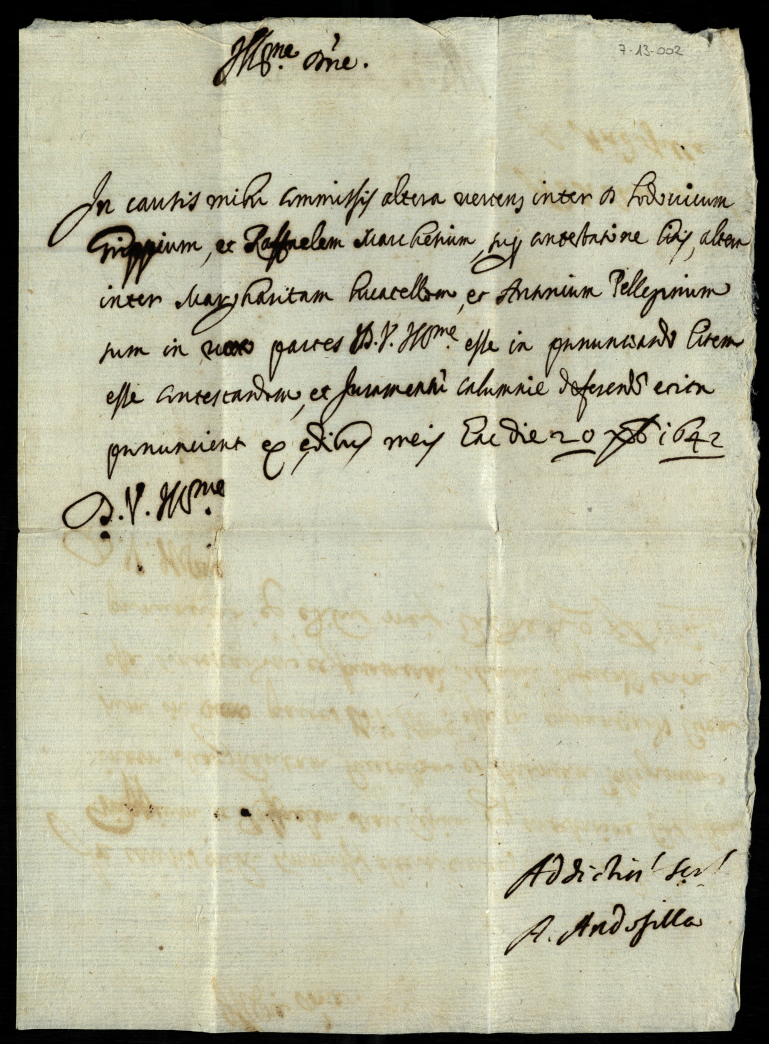 7-13-002
Ill.me D'ne.
In causis mihi commissis altera vertens inter D Lodovicum
Grippium, et Raffaelem Marchesium, sup contestatione litis, altera
inter Margharitam lucatellam, et Antonium Pellegrinum
sum in voto partes D.V. Ill.me esse in pronunciando litem
esse contestandam, et Juramentū calumnie deferendū erit
pronuncient ex ędibus meis hac die 20 Xbris 1642
D.V. Ill.me
Addictiss' Ser'
A. Andosilla